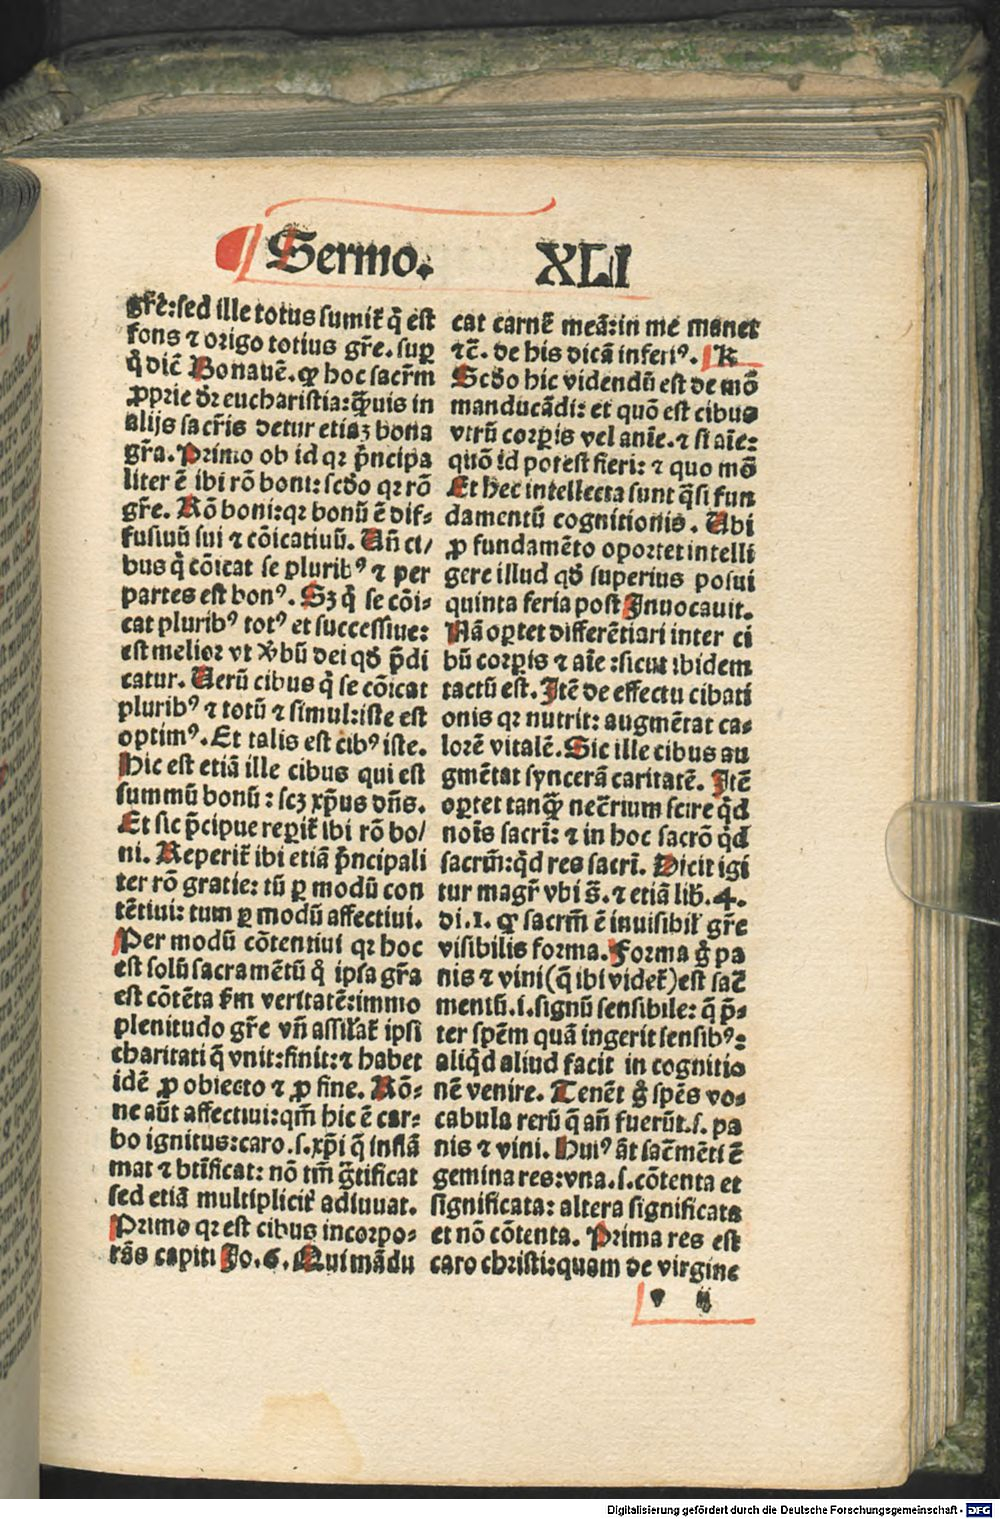 Sermo. XLI
gr̃e:sed ille totus sumit̃ q̃ est
fons ⁊ origo totius gr̃e. sup̱
q̊ dic̃ Bonauẽ. ꝙ hoc sacr̃m
ꝓprie dr̃ eucharistia:q̃uis in
alijs sacr̃is detur etiaꝫ bona
gr̃a. Primo ob id qꝛ p̃ncipa
liter ẽ ibi rõ boni: scd̃o qꝛ rõ
gr̃e. Rõ boni:qꝛ bonũ ẽ dif⸗
fusiuũ sui ⁊ cõicatiuũ. Uñ ci/
bus q̃ cõicat se pluribꝰ ⁊ per
partes est bonꝰ. Sꝫ q̃ se cõi⸗
cat pluribꝰ totꝰ et successiue:
est melior vt v̾bũ dei qd̃ p̃di
catur. Uerũ cibus q̃ se cõicat
pluribꝰ ⁊ totũ ⁊ simul:iste est
optimꝰ. Et talis est cibꝰ iste.
Hic est etiã ille cibus qui est
summũ bonũ: scꝫ xp̃us dñs.
Et sic p̃cipue reperit̃ ibi rõ bo/
ni. Reperit̃ ibi etiã p̃ncipali
ter rõ gratie: tũ ꝑ modũ con
tẽtiui: tum ꝑ modũ affectiui.
Per modũ cõtentiui qꝛ hoc
est solũ sacramẽtũ q̊ ipsa gr̃a
est cõtẽta fm̃ veritatẽ:immo
plenitudo gr̃e vñ assil̃at̃ ipsi
charitati q̃ vnit:finit:⁊ habet
idẽ ꝓ obiecto ⁊ ꝓ fine. Rõ⸗
ne aũt affectiui:qm̃ hic ẽ car⸗
bo ignitus:caro.s.xp̃i q̃ inflã
mat ⁊ btĩficat: nõ tm̃ g̃tificat
sed etiã multiplicit̃ adiuuat.
Primo qꝛ est cibus incorpo⸗
rãs capiti Jo.6. Qui mãdu
cat carnẽ meã:in me manet
⁊c̃. de his dicã inferiꝰ. K
Scd̃o hic videndũ est de mõ
manducãdi: et quõ est cibus
vtrũ corꝑis vel aĩe.⁊ si aĩe:
quõ id potest fieri: ⁊ quo mõ
Et hec intellecta sunt q̃si fun
damentũ cognitionis. Ubi
ꝓ fundamẽto oportet intelli
gere illud qd̃ superius posui
quinta feria post Inuocauit.
Nã oꝑtet differẽtiari inter ci
bũ corꝑis ⁊ aĩe :sicut ibidem
tactũ est. Itẽ de effectu cibati
onis qꝛ nutrit: augmẽtat ca⸗
lorẽ vitalẽ. Sic ille cibus au
gmẽtat syncerã caritatẽ. Itẽ
oꝑtet tanq̃ nec̃rium scire q̊d
noĩs sacr̃i: ⁊ in hoc sacr̃o q̊d
sacrm̃:q̊d res sacr̃i. Dicit igi
tur magr̃ vbi s̃. ⁊ etiã lib̃.4.
di.1. ꝙ sacrm̃ ẽ inuisibil̃ gr̃e
visibilis forma. Forma g̊ pa
nis ⁊ vini(q̃ ibi videt̃)est sac̃
mentũ.i.signũ sensibile: q̃ p̃⸗
ter spẽm quã ingerit sensibꝰ:
aliq̊d aliud facit in cognitio
nẽ venire. Tenẽt g̊ sp̃es vo⸗
cabula rerũ q̃ añ fuerũt.s. pa
nis ⁊ vini. Huiꝰ aũt sac̃mẽti ẽ
gemina res:vna.s.cõtenta et
significata: altera significata
et nõ cõtenta. Prima res est
caro christi:quam de virgine
ij
Digitalisierung gefördert durch die Deutsche Forschungsgemeinschaft - DFG